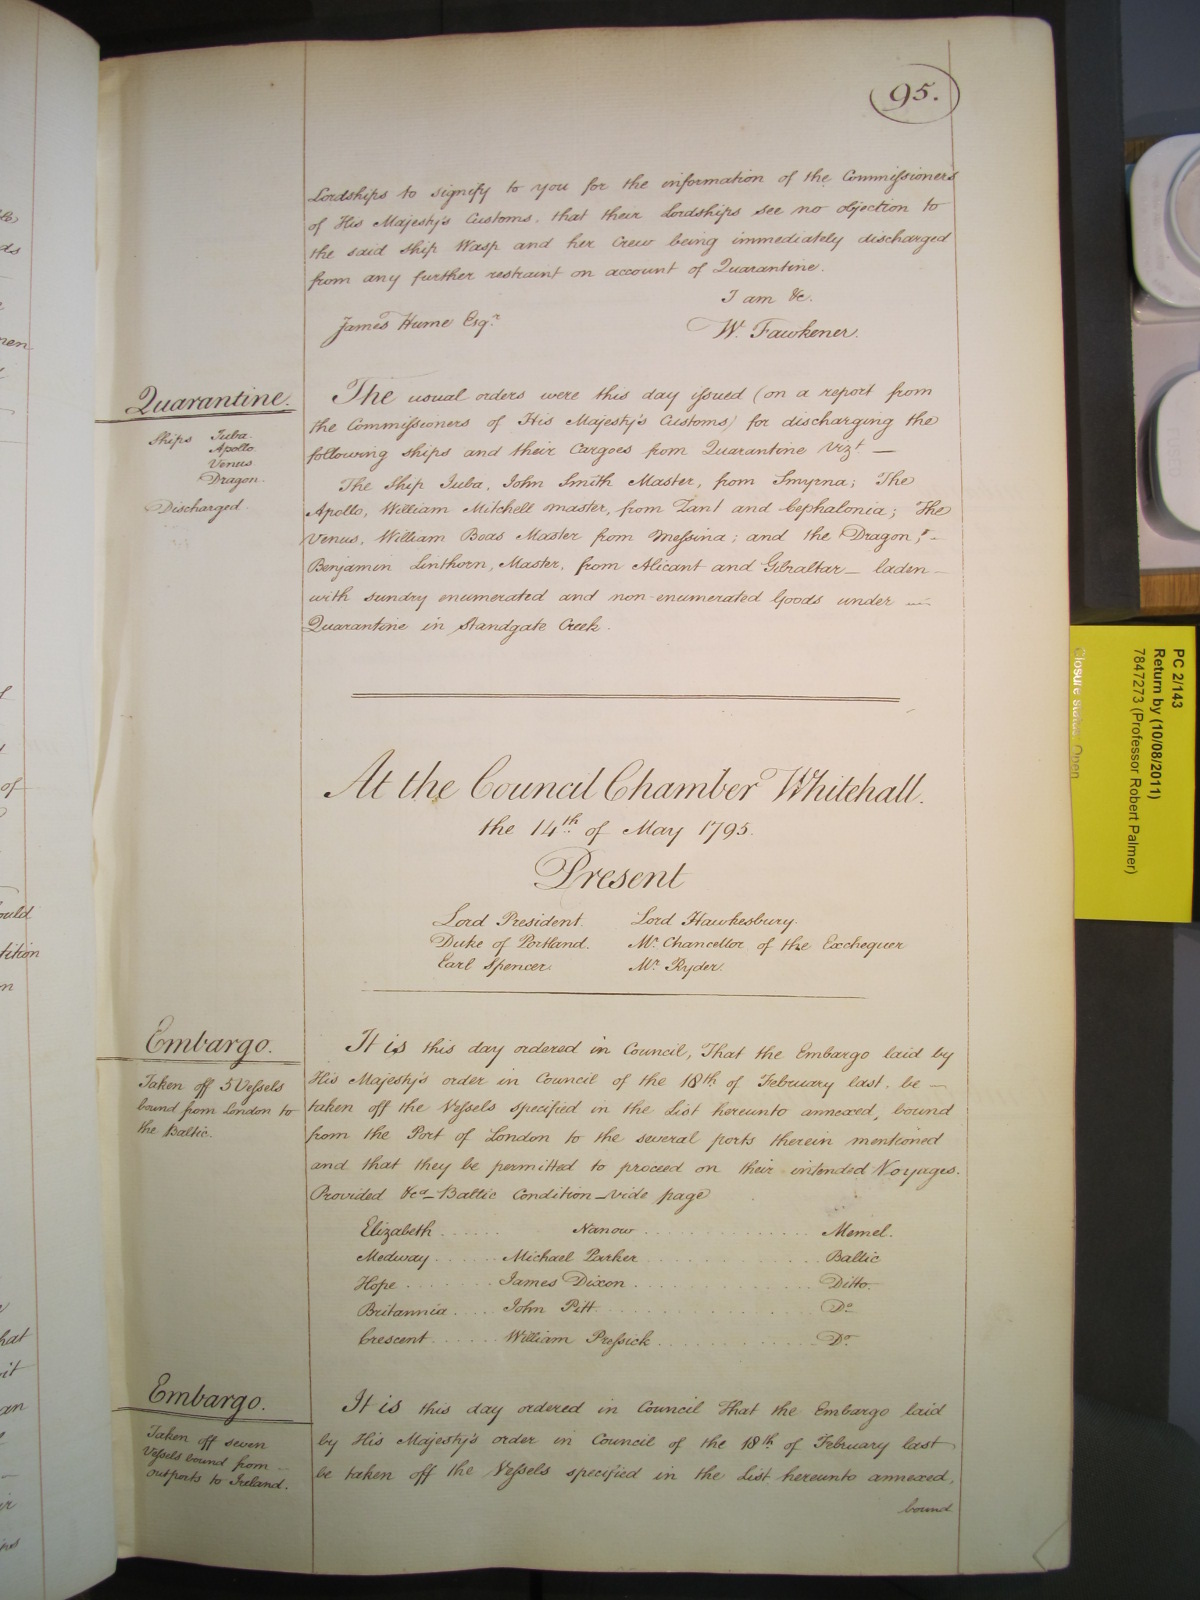 95.
Lordships to signify to you for the information of the Commissioners
of His Majesty's Customs. that their Lordships see no objection to
the said ship Wasp and her Crew being immediately discharged
from any further restraint on account of Quarantine.
I am &c.
James Hume Esqr.
W. Fawkener.
Quarantine.
Ships Juba.
Apollo
Venus
Dragon.
Discharged.
The usual orders were this day issued (on a report from
the Commissioners of His Majesty's Customs) for discharging the
following ships and their Cargoes from Quarantine Vizt. —
The Ship Juba, John Smith Master, from Smyrna; The
Apollo, William Mitchell master, from Zant and Cephalonia; The
Venus, William Boas Master from Messina; and the Dragon,
Benjamin Linthorn, Master, from Alicant and Gibraltar — laden —
with sundry enumerated and non-enumerated Goods under —
Quarantine in Standgate Creek.
At the Council Chamber Whitehall.
the 14th. of May 1795.
Present
Lord President. Lord Hawkesbury.
Duke of Portland. Mr. Chancellor of the Exchequer
Earl Spencer. Mr. Ryder.
Embargo.
Taken off 5 Vessels
bound from London to
the Baltic.
It is this day ordered in Council, That the Embargo laid by
His Majesty's order in Council of the 18th of February last. be —
taken off the Vessels specified in the List hereunto annexed, bound
from the Port of London to the several ports therein mentioned
and that they be permitted to proceed on their intended Voyages.
Provided &ca — Baltic Condition — vide page
Elizabeth ...... Nanow ............ Memel.
Medway ...... Michael Parker ............ Baltic
Hope ........ James Dixon ............ Ditto.
Britannia .... John Pitt ............ Do.
Crescent ...... William Pressick ............ Do.
Embargo.
Taken off seven
Vessels bound from —
outports to Ireland.
It is this day ordered in Council That the Embargo laid
by His Majesty's order in Council of the 18th of February last
be taken off the Vessels specified in the List hereunto annexed,
bound
PC 2/143
Return by (10/08/2011)
7847273 (Professor Robert Palmer)
Closure status: Open